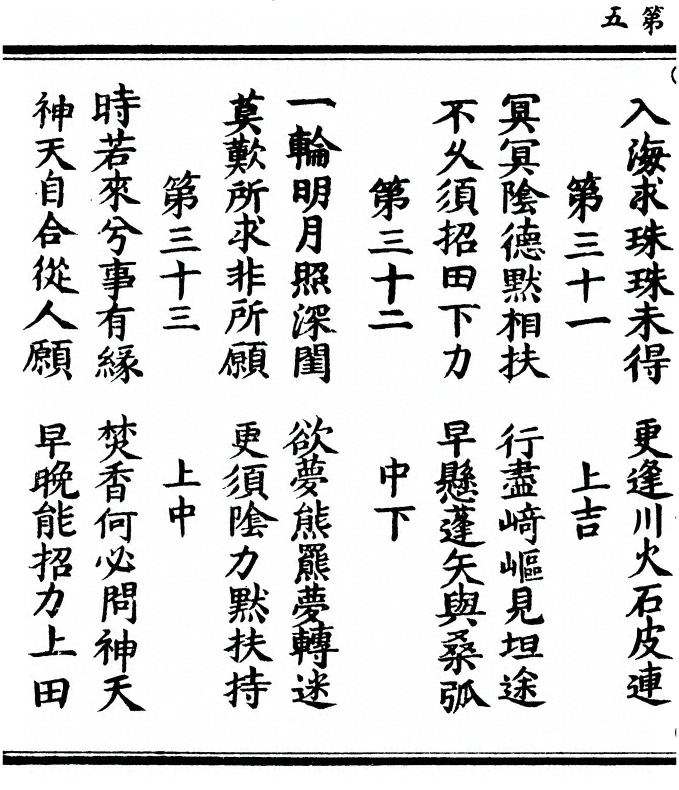 第五
入海求珠珠未得　更逢川火石皮連
第三十一　上吉
冥冥陰德默相扶　行盡崎嶇見坦途
不久須招田下力　早懸蓬矢與桑弧
第三十二　中下
一輪明月照深閨　欲夢熊羆夢轉迷
莫歎所求非所願　更須陰力默扶持
第三十三　上中
時若來兮事有緣　焚香何必問神天
神天自合從人願　早晚能招力上田